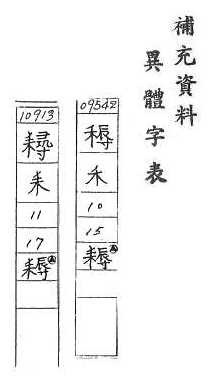 補充資料
異體字表
09542
禾
10
15
耨
10913
耒
11
17
耨